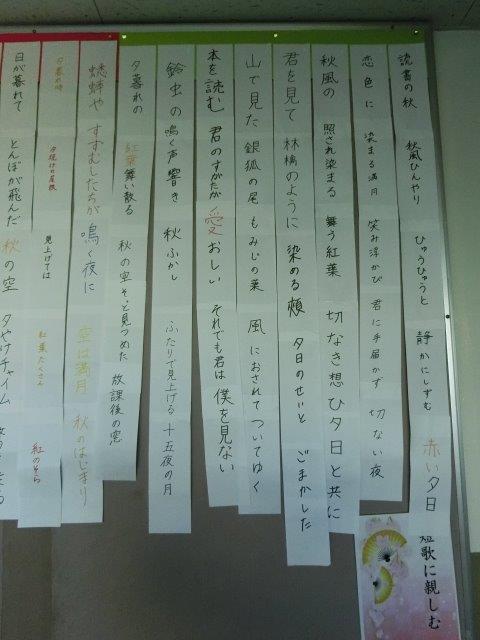 読書の秋 秋風ひんやり ひゅうひゅうと 静かにしずむ 赤い夕日
恋色に 染まる満月 笑み浮かび 君に手届かず 切ない夜
秋風の 照され染まる 舞う紅葉 切なき想ひ夕日と共に
君を見て 林檎のように 染める頬 夕日のせいと ごまかした
山で見た 銀狐の尾 もみじの葉 風におされて ついてゆく
本を読む 君のすがたが 愛おしい それでも君は 僕を見ない
鈴虫の 鳴く声響き 秋ふかし ふたりで見上げる 十五夜の月
夕暮れの 紅葉舞い散る 秋の空 そっと見つめた 放課後の窓
蟋蟀や すずむしたちが 鳴く夜に 空は満月 秋のはじまり
夕暮の時 夕焼けの屋根 見上げては 紅葉たくさん 紅のそら
日が暮れて とんぼが飛んだ 秋の空 夕やけチャイム
短歌に親しむ